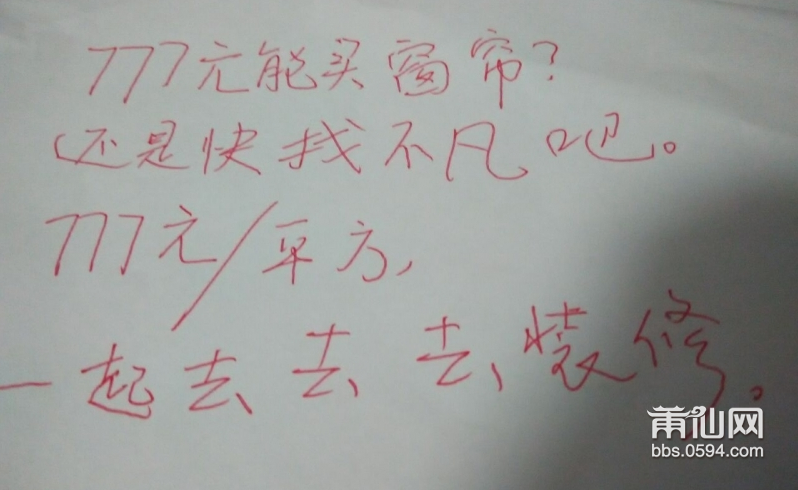 777元能买窗帘?
还是快找不凡吧。
777元/平方,
一起去去去装修。
莆仙网
bbs.0594.com